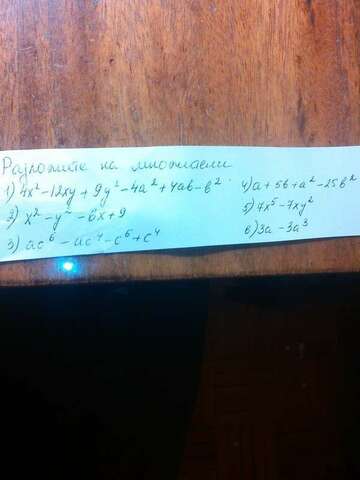 Разложите на множители.
1) 4x² - 12xy + 9y² - 4a² + 4ab - b²
2) x² - y² - 6x + 9
3) ac⁶ - ac⁴ - c⁶ + c⁴
4) a + 5b + a² - 25b²
5) 7x⁵ - 7xy²
6) 3a - 3a³